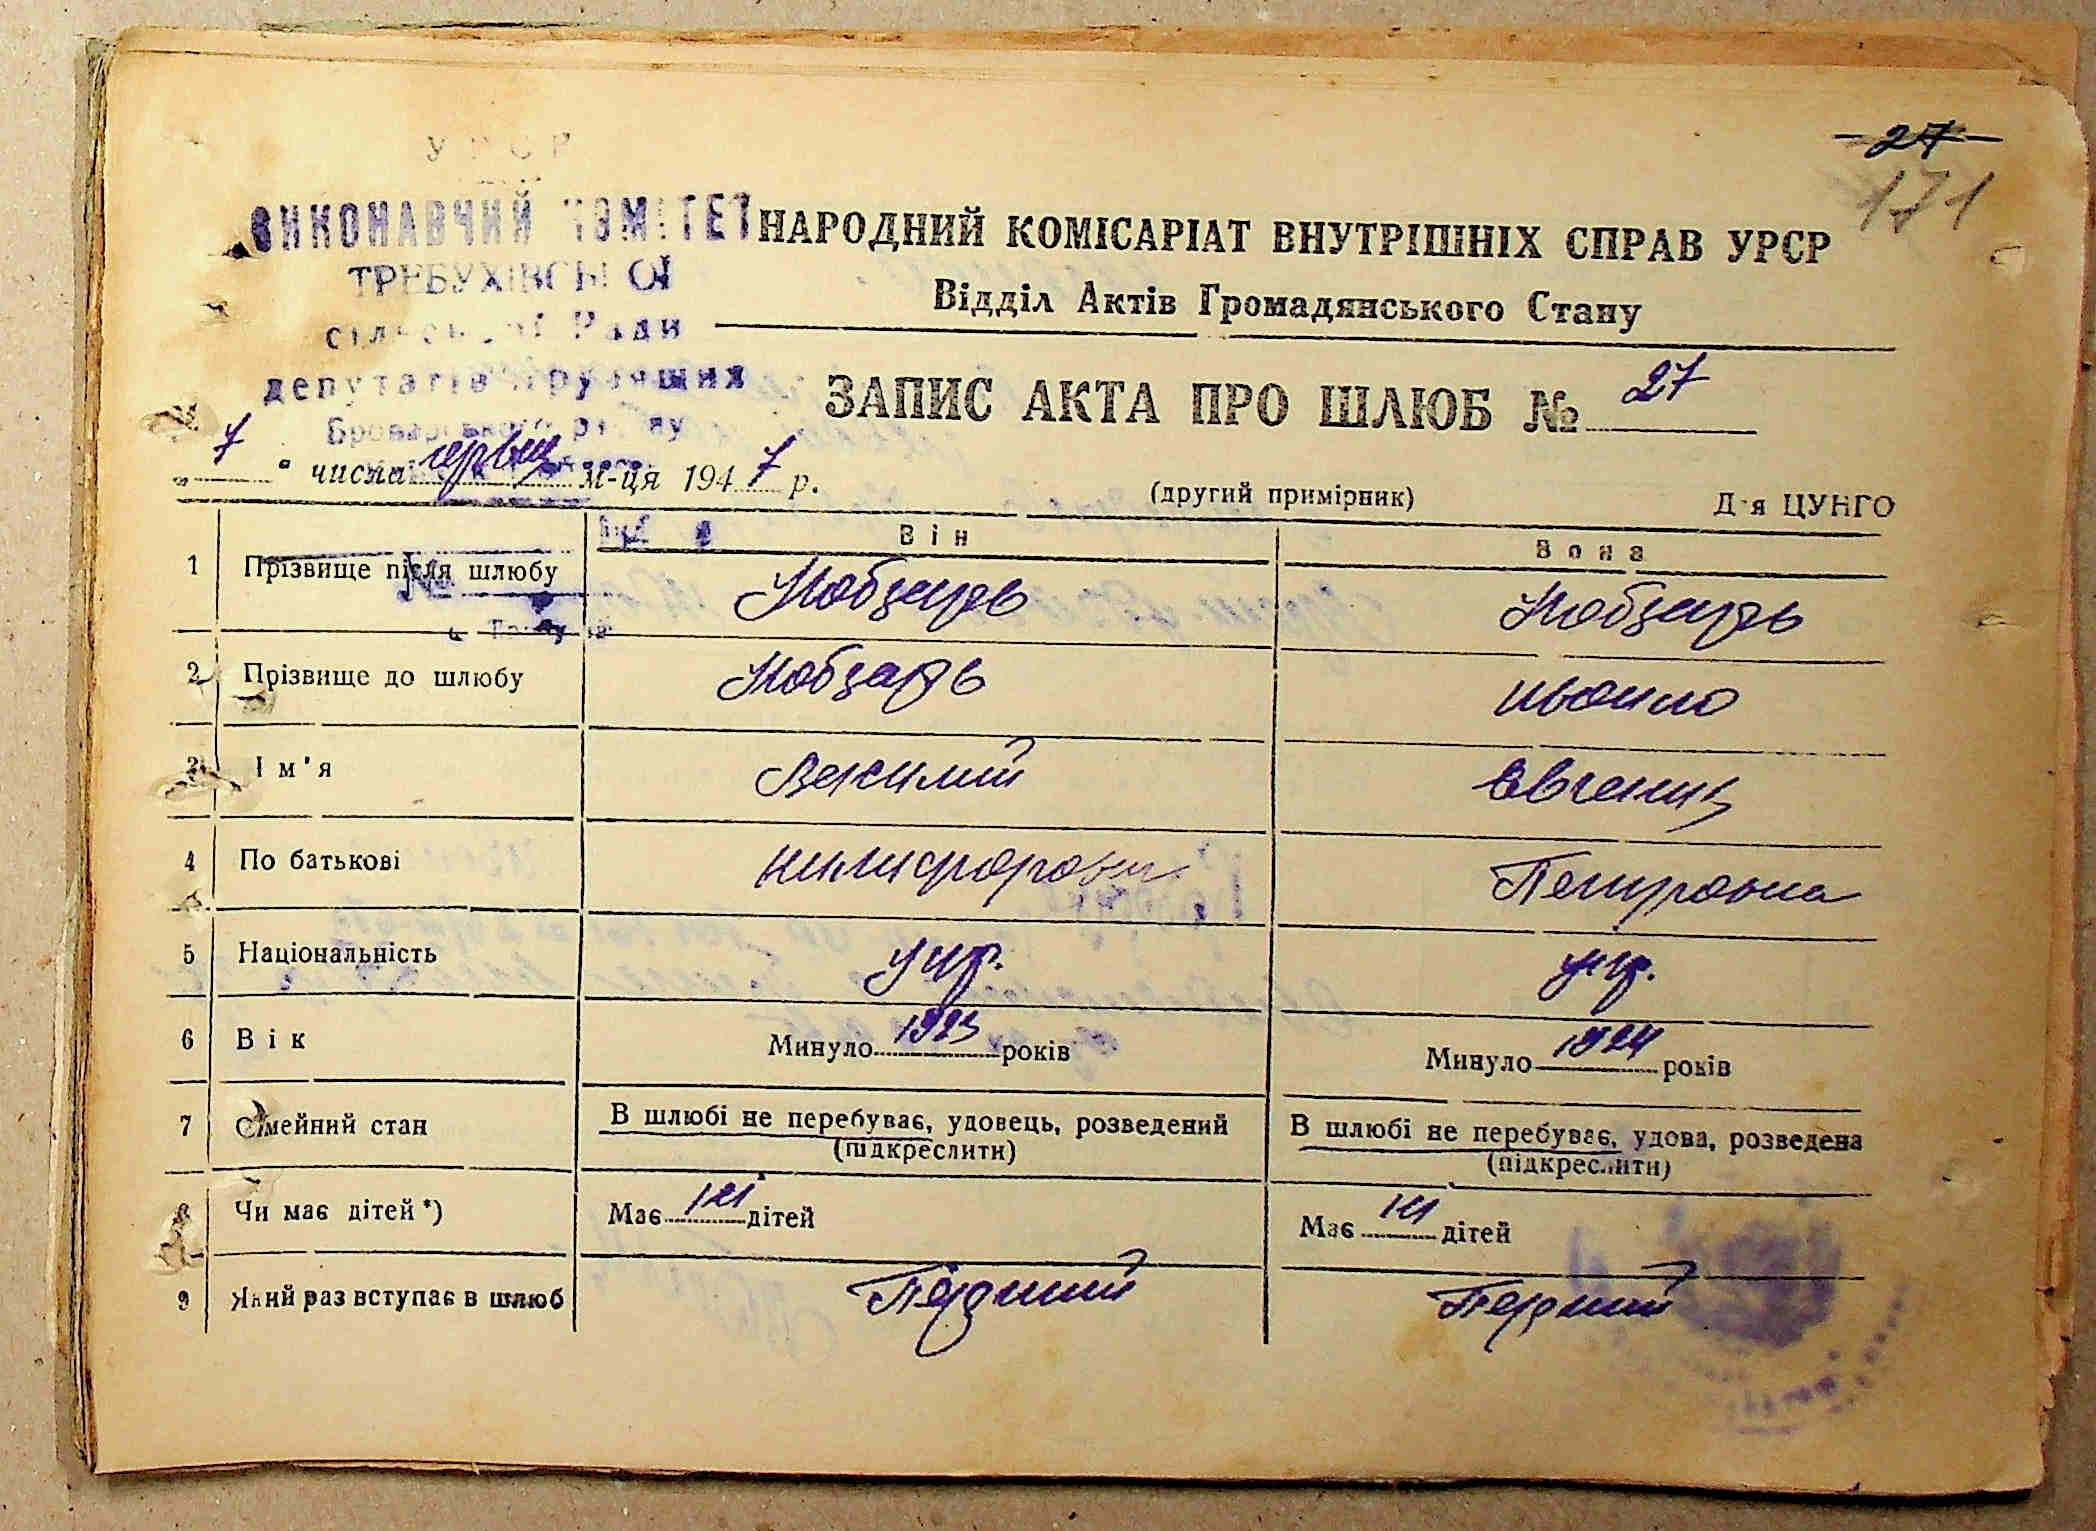 27
171
УРСР
ВИКОНАВЧИЙ КОМІТЕТ
ТРЕБУХІВСЬКОЇ
сільської Ради
депутатів трудящих
Броварського району
НАРОДНИЙ КОМІСАРІАТ ВНУТРІШНІХ СПРАВ УРСР
Відділ Актів Громадянського Стану
ЗАПИС АКТА ПРО ШЛЮБ № 27
„ 7 " числа червня м-ця 1947 р.
(другий примірник)
Для ЦУНГО
Він
Вона
1 Прізвище після шлюбу Кобзарь Кобзарь
№
2 Прізвище до шлюбу Кобзарь
3 Ім'я Євгенія
4 По батькові Петровна
5 Національність укр. укр.
6 Вік Минуло 1923 років Минуло 1924 років
7 Сімейний стан В шлюбі не перебуває, удовець, розведений В шлюбі не перебуває, удова, розведена
(підкреслити) (підкреслити)
8 Чи має дітей*) Має ні дітей Має ні дітей
9 Який раз вступає в шлюб Перший Перший